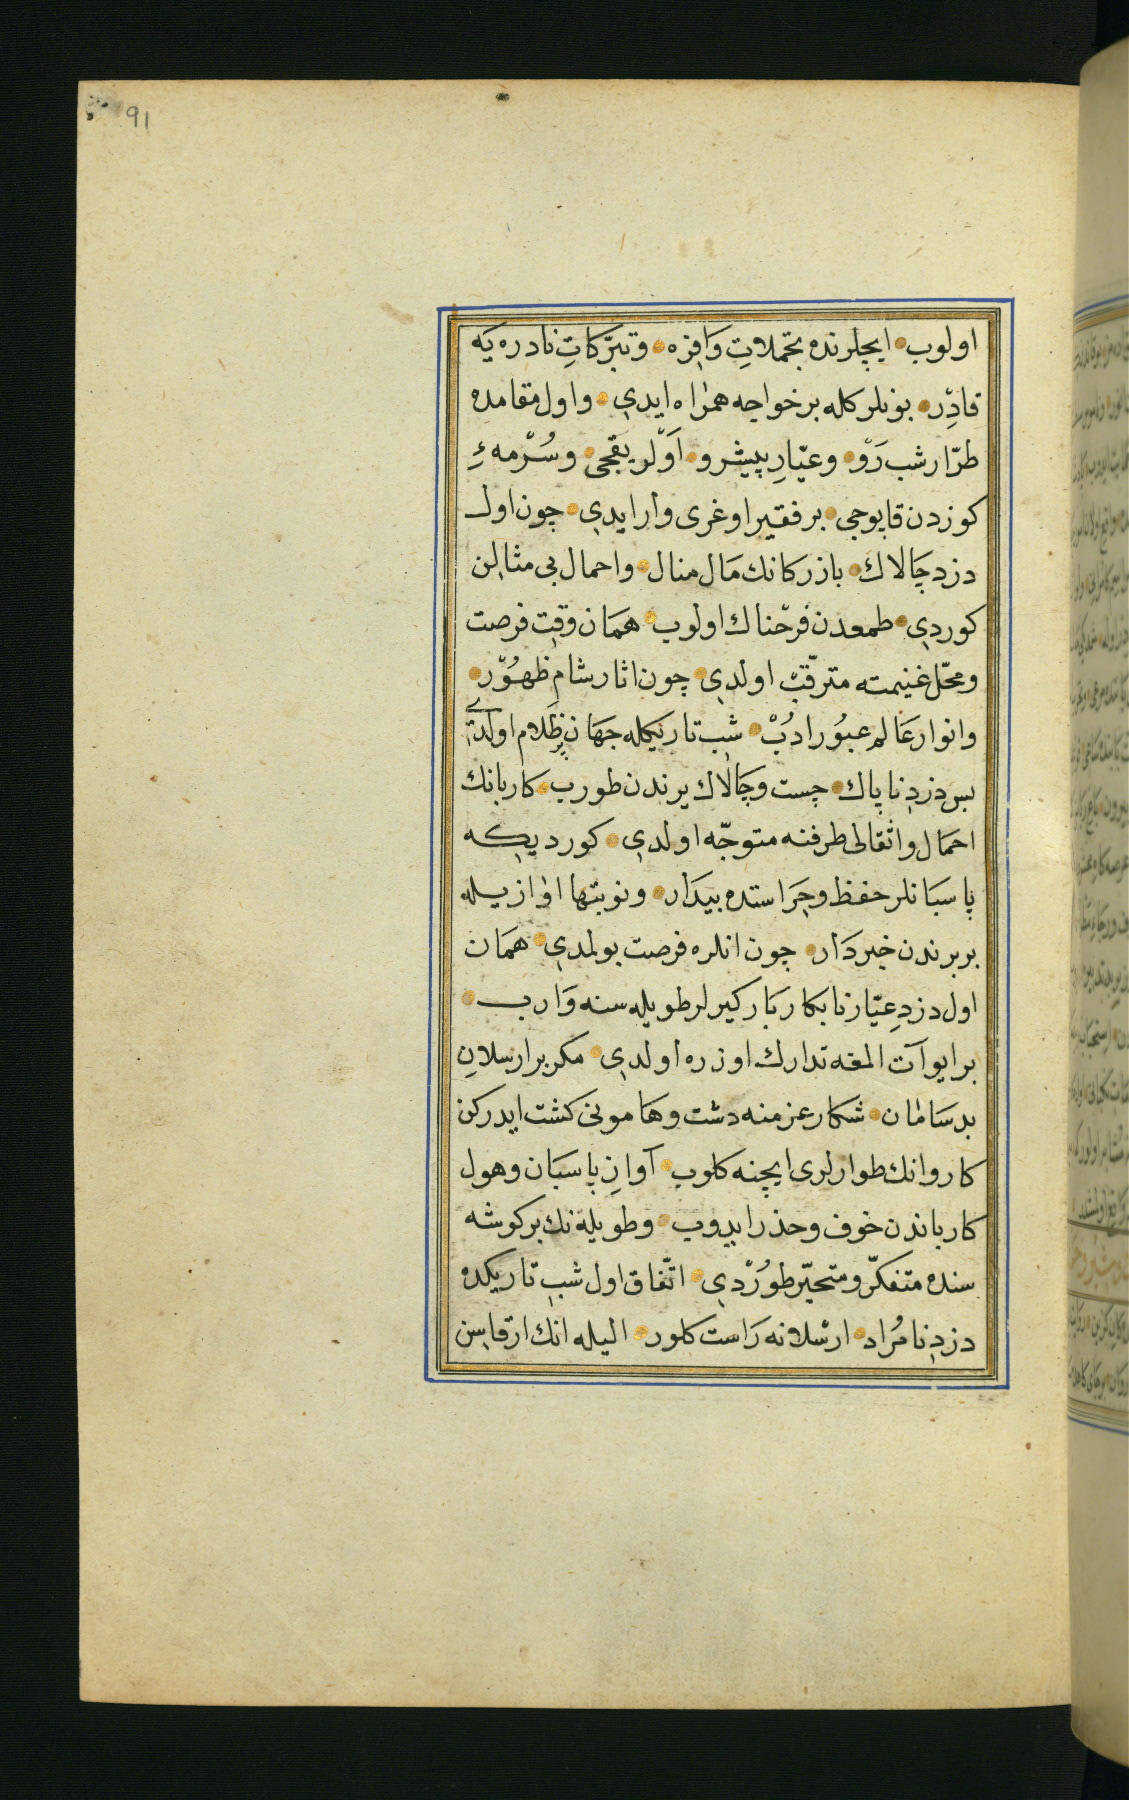 91
اولوب • ايچلرنده تجملاتِ وَافِره • وتبرّكاتِ نادره يَه
قادِر • بونلركله برخواجه همرٰاه ايدي • واول مقامده
طرّار شب رَوْ • وعيّارِ پيشرو • اَوْلر يقجى • وسُرْمهءِ
كوزدن قاپوجى • برفقير اوغرى وار ايدي • چون اول
دزد چَالاك • بازركانك مَال منال • واحمال بى مثالِن
كوردي • طمعدن فرحْناك اولوب • همَان وقتِ فرصت
ومحّل غنيمته مترقّبْ اولدي • چون اثار شامِ ظهُوّر •
وانوار عَالم عبُور ادُبْ • شب تاريكله جهَان پر ظلام اولدى
بس دزدِ ناپاك • چست وچَالاك يرندن طورب • كاربانك
احمَال واثقالى طرفنه متوجّه اولدي • كورديكه
پاسبَانلر حفظ وحِرَاستده بيدَار • ونوبتها اوٰازيله
بربرندن خبردَار • چون انلره فرصت بولمدي • همَان
اول دزدِ عيّار نابكار بَاركيرلر طويله سنه وَارب •
برايو آت المغه تدارك اوزره اولدي • مكر برارسلانِ
بدسَامٰان • شكار عزمنه دشت وهَامونى كشت ايدركن
كاروانك طوارلرى ايچنه كلوب • آوازِ پاسبَان وهول
كارباندن خوف وحذر ايدوب • وطويلۀنك بركوشه
سنده متفكّر ومتحيّر طوُرْدي • اتّفاق اول شبِ تاريكده
دزدِ نامُراد • ارسْلانه رَاست كلور • اليله انك ارقاسِن